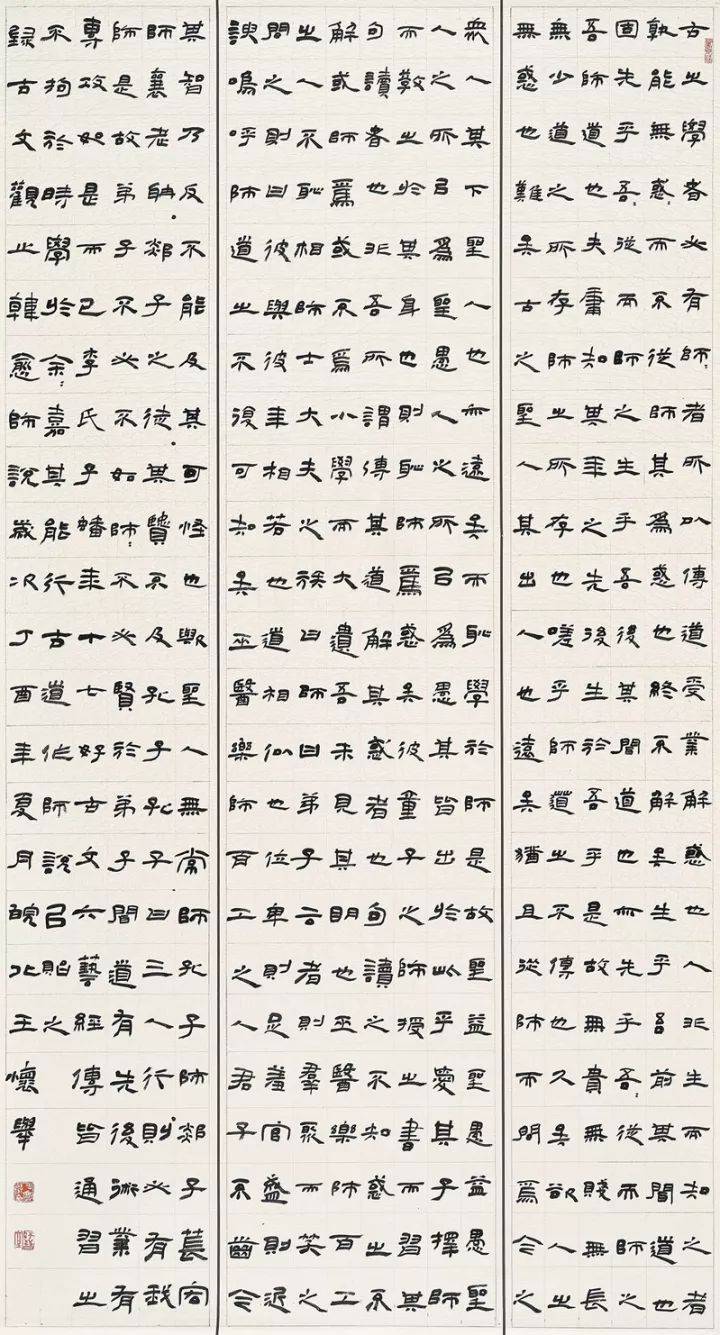 古之學者必有師〻者所以傳道受業解惑也人非生而知之者
孰能無惑〻而不從師其爲惑也終不解矣生乎吾前其聞道也
固先乎吾〻從而師之生乎吾後其聞道也亦先乎吾〻從而師之
吾師道也夫庸知其年之先後生於吾乎是故無貴無賤無長
無少道之所存師之所存也嗟乎師道之不傳也久矣欲人之
無惑也難矣古之聖人其出人也遠矣猶且從師而問焉今之
衆人其下聖人也亦遠矣而恥學於師是故聖益聖愚益愚聖
人之所以爲聖愚人之所以爲愚其皆出於此乎愛其子擇師
而教之於其身也則恥師焉惑矣彼童子之師授之書而習其
句讀者也非吾所謂傳其道解其惑者也句讀之不知惑之不
解或師焉或不焉小學而大遺吾未見其明也巫醫樂師百工
之人不恥相師士大夫之族曰師曰弟子云者則羣聚而笑之
問之則曰彼與彼年相若也道相似也位卑則足羞官盛則近
諛嗚呼師道之不復可知矣巫醫樂師百工之人君子不齒今
其智乃反不能及其可怪也歟聖人無常師孔子師郯子萇宏
師襄老聃郯子之徒其賢不及孔子孔子曰三人行則必有我
師是故弟子不必不如師〻不必賢於弟子聞道有先後術業有
專攻如是而已李氏子蟠年十七好古文六藝經傳皆通習之
不拘於時學於余〻嘉其能行古道作師說以貽之
錄古文觀止韓愈師說歲次丁酉年夏月皖北王懷舉